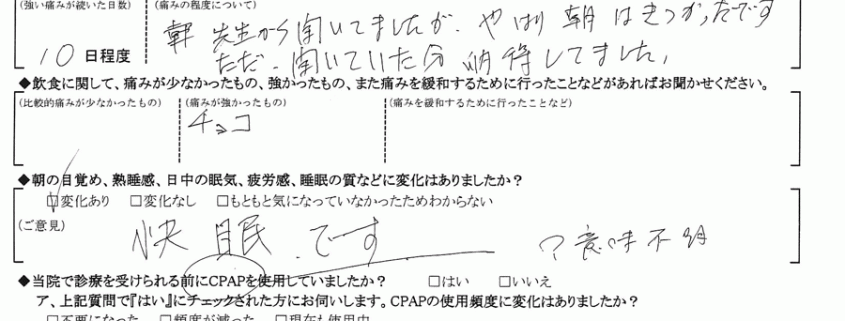 (強い痛みが続いた日数) (痛みの程度について)
先生から聞いてましたが、やはり朝はきつかったです
10 日程度 ただ、聞いていた分納得してました。
◆飲食に関して、痛みが少なかったもの、強かったもの、また痛みを緩和するために行ったことなどがあればお聞かせください。
(比較的痛みが少なかったもの) (痛みが強かったもの) (痛みを緩和するために行ったことなど)
チョコ
◆朝の目覚め、熟睡感、日中の眠気、疲労感、睡眠の質などに変化はありましたか?
□変化あり □変化なし □もともと気になっていなかったためわからない
(ご意見)
快眠です ?意味不明
◆当院で診療を受けられる前にCPAPを使用していましたか? □はい □いいえ
ア、上記質問で『はい』にチェックされた方にお伺いします。CPAPの使用頻度に変化はありましたか?
□不要になった □頻度が減った □現在も使用中